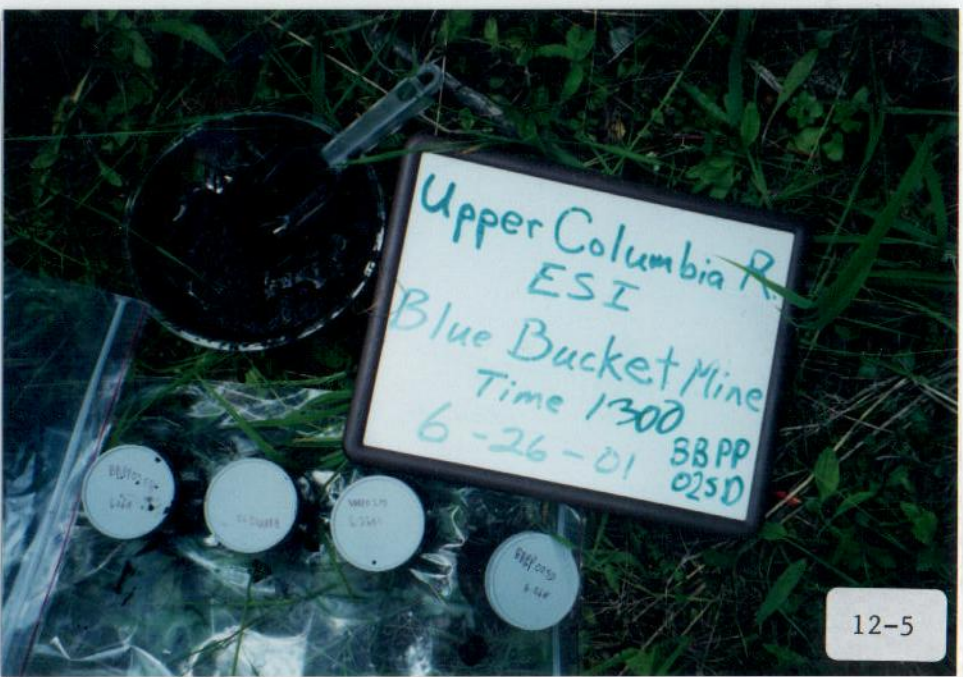 Upper Columbia R.
ESI
Blue Bucket Mine
Time 1300
6-26-01
BBPP
02SD
12-5